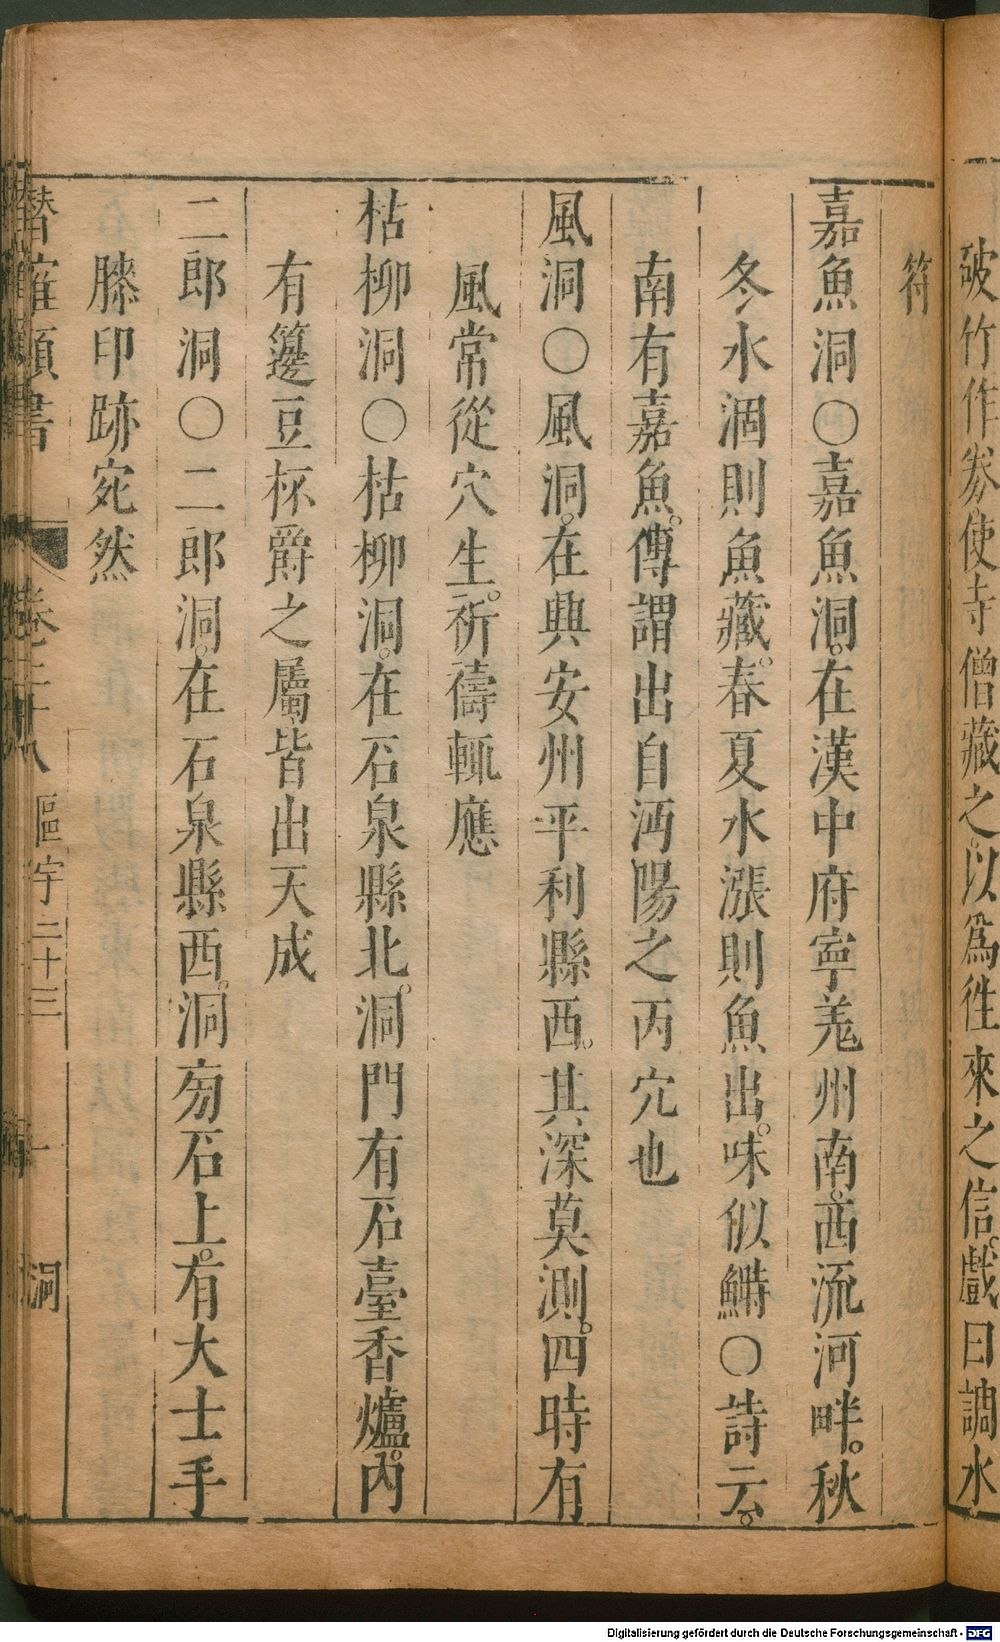 破竹作券。使寺僧藏之。以爲徃來之信。戲曰調水
符
嘉魚洞〇嘉魚洞。在漢中府寜羌州南。西流河畔。秋
冬水涸則魚藏。春夏水漲則魚出。味似鰣〇詩云。
南有嘉魚。傳謂出自沔陽之丙穴也
風洞〇風洞。在興安州平利縣西。其深莫測。四時有
風常從穴生。祈禱輒應
枯柳洞〇枯柳洞。在石泉縣北。洞門有石臺香爐。內
有籩豆杯爵之屬皆出天成
二郎洞〇二郎洞。在石泉縣西。洞旁石上。有大士手
膝印跡宛然
潛確類書
卷二十八
區宇二十三
洞
Digitalisierung gefördert durch die Deutsche Forschungsgemeinschaft - DFG